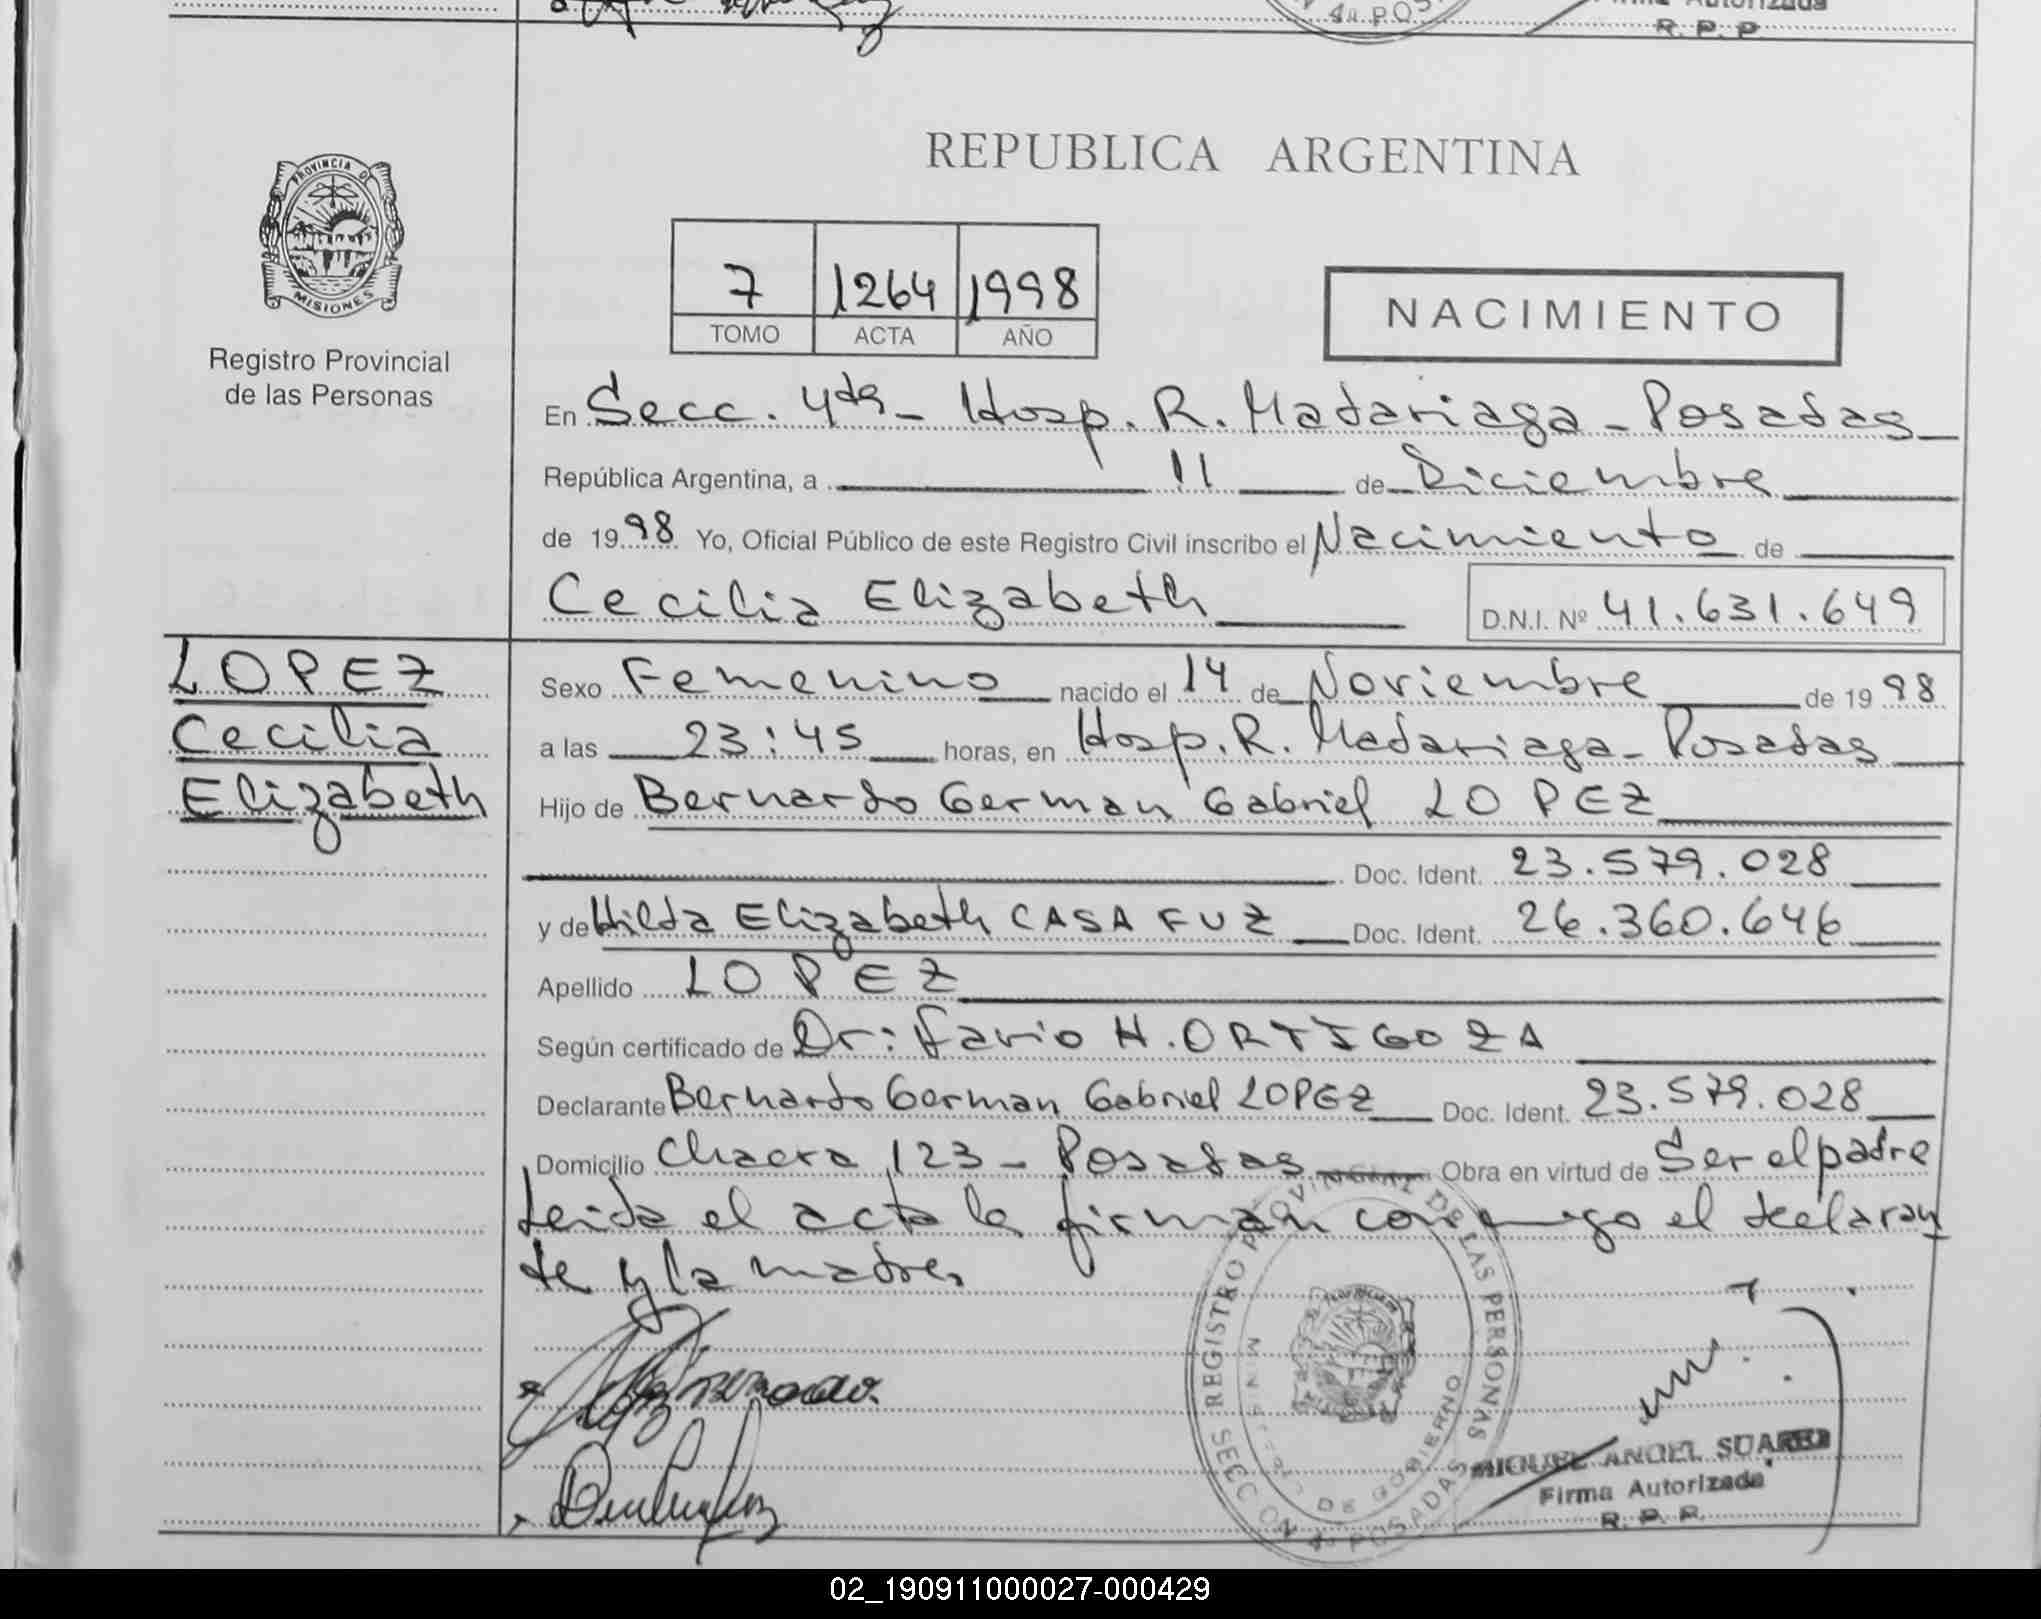 R. P. P.
REPUBLICA ARGENTINA
PROVINCIA DE
MISIONES
Registro Provincial
de las Personas
7 1264 1998
TOMO ACTA AÑO
NACIMIENTO
En Secc. 4ta - Hosp. R. Madariaga - Posadas
República Argentina, a 11 de Diciembre
de 1998 Yo, Oficial Público de este Registro Civil inscribo el Nacimiento de
Cecilia Elizabeth D.N.I. Nº 41.631.649
LOPEZ
Cecilia
Elizabeth
Sexo Femenino nacido el 14 de Noviembre de 1998
a las 23:45 horas, en Hosp. R. Madariaga - Posadas
Hijo de Bernardo German Gabriel LOPEZ
Doc. Ident. 23.579.028
y de Hilda Elizabeth CASAFUZ Doc. Ident. 26.360.646
Apellido LOPEZ
Según certificado de Dr: Favio H. ORTIGOZA
Declarante Bernardo German Gabriel LOPEZ Doc. Ident. 23.579.028
Domicilio Chacra 123 - Posadas Obra en virtud de Ser el padre
Leida el acta la firman conmigo el declaran
te y la madre.
REGISTRO PROVINCIAL DE LAS PERSONAS
SECCION 4a POSADAS
MINISTERIO DE GOBIERNO
MIGUEL ANGEL SUAREZ
Firma Autorizada
R. P. P.
02_190911000027-000429